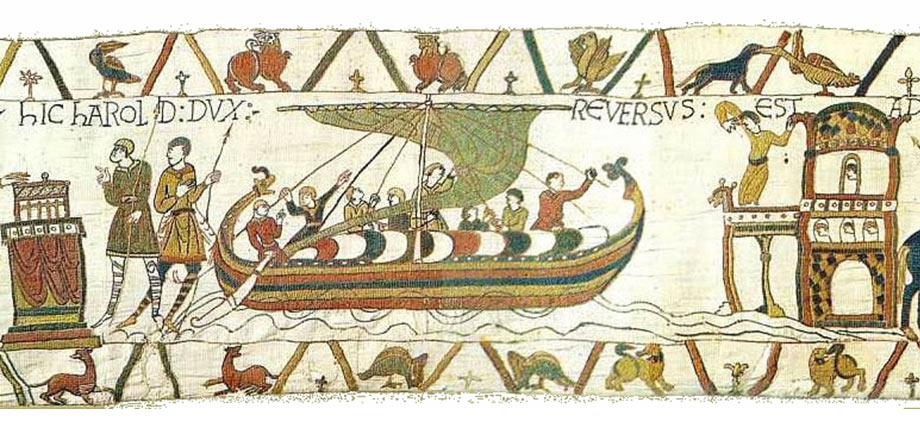 hIC hAROLD: DVX: REVERSVS: EST A